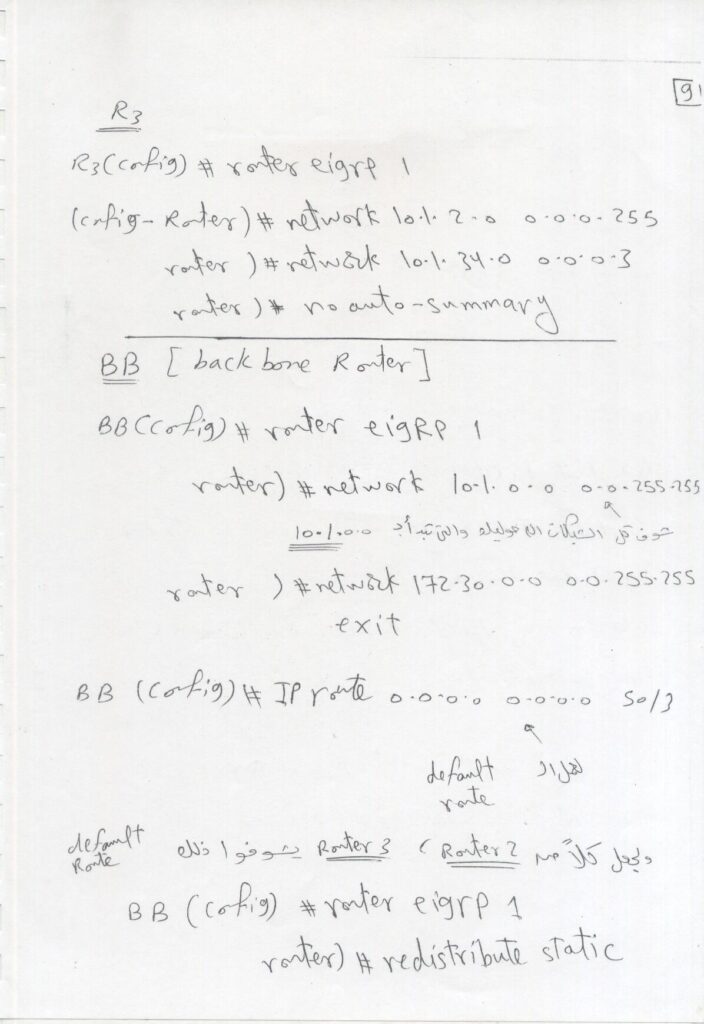 91
R3
R3(config) # router eigrp 1
(config-Router) # network 10.1.2.0 0.0.0.255
router ) # network 10.1.34.0 0.0.0.3
router ) # no auto-summary
BB [backbone Router]
BB(config) # router eigRp 1
router) # network 10.1.0.0 0.0.255.255
شوف كل الشبكات اللى حواليك والتى تبدأ بـ 10.1.0.0
router ) # network 172.30.0.0 0.0.255.255
exit
BB (config) # IP route 0.0.0.0 0.0.0.0 S0/3
لعمل الـ default route
ولجعل كلاً من Router2 ، Router3 يشوفوا ذلك default Route
BB (config) # router eigrp 1
router) # redistribute static